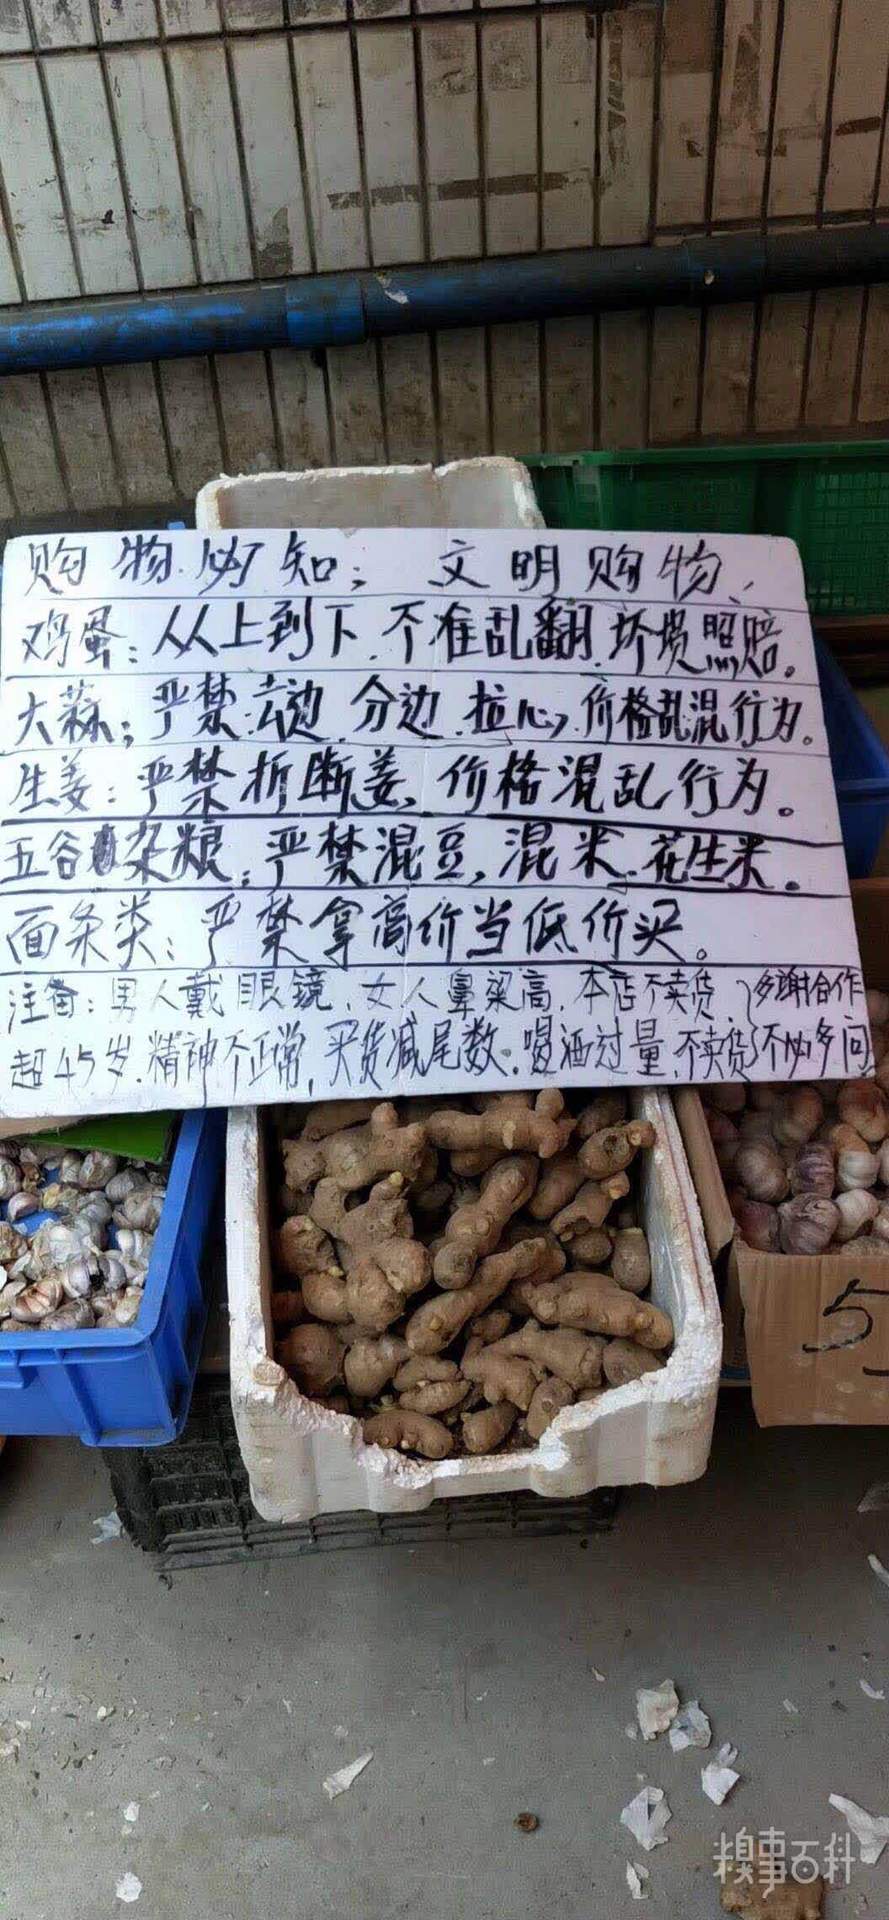 购物必知：文明购物、
鸡蛋：从上到下.不准乱翻.坏货照赔。
大蒜：严禁.去边.分边.拉心,价格乱混行为。
生姜：严禁折断姜,价格混乱行为。
五谷杂粮：严禁混豆,混米.花生米。
面条类：严禁拿高价当低价买。
注备：男人戴眼镜、女人鼻梁高.本店不卖货.}多谢合作
超45岁.精神不正常,买货减尾数.喝酒过量.不卖货}不必多问
5
糗事百科